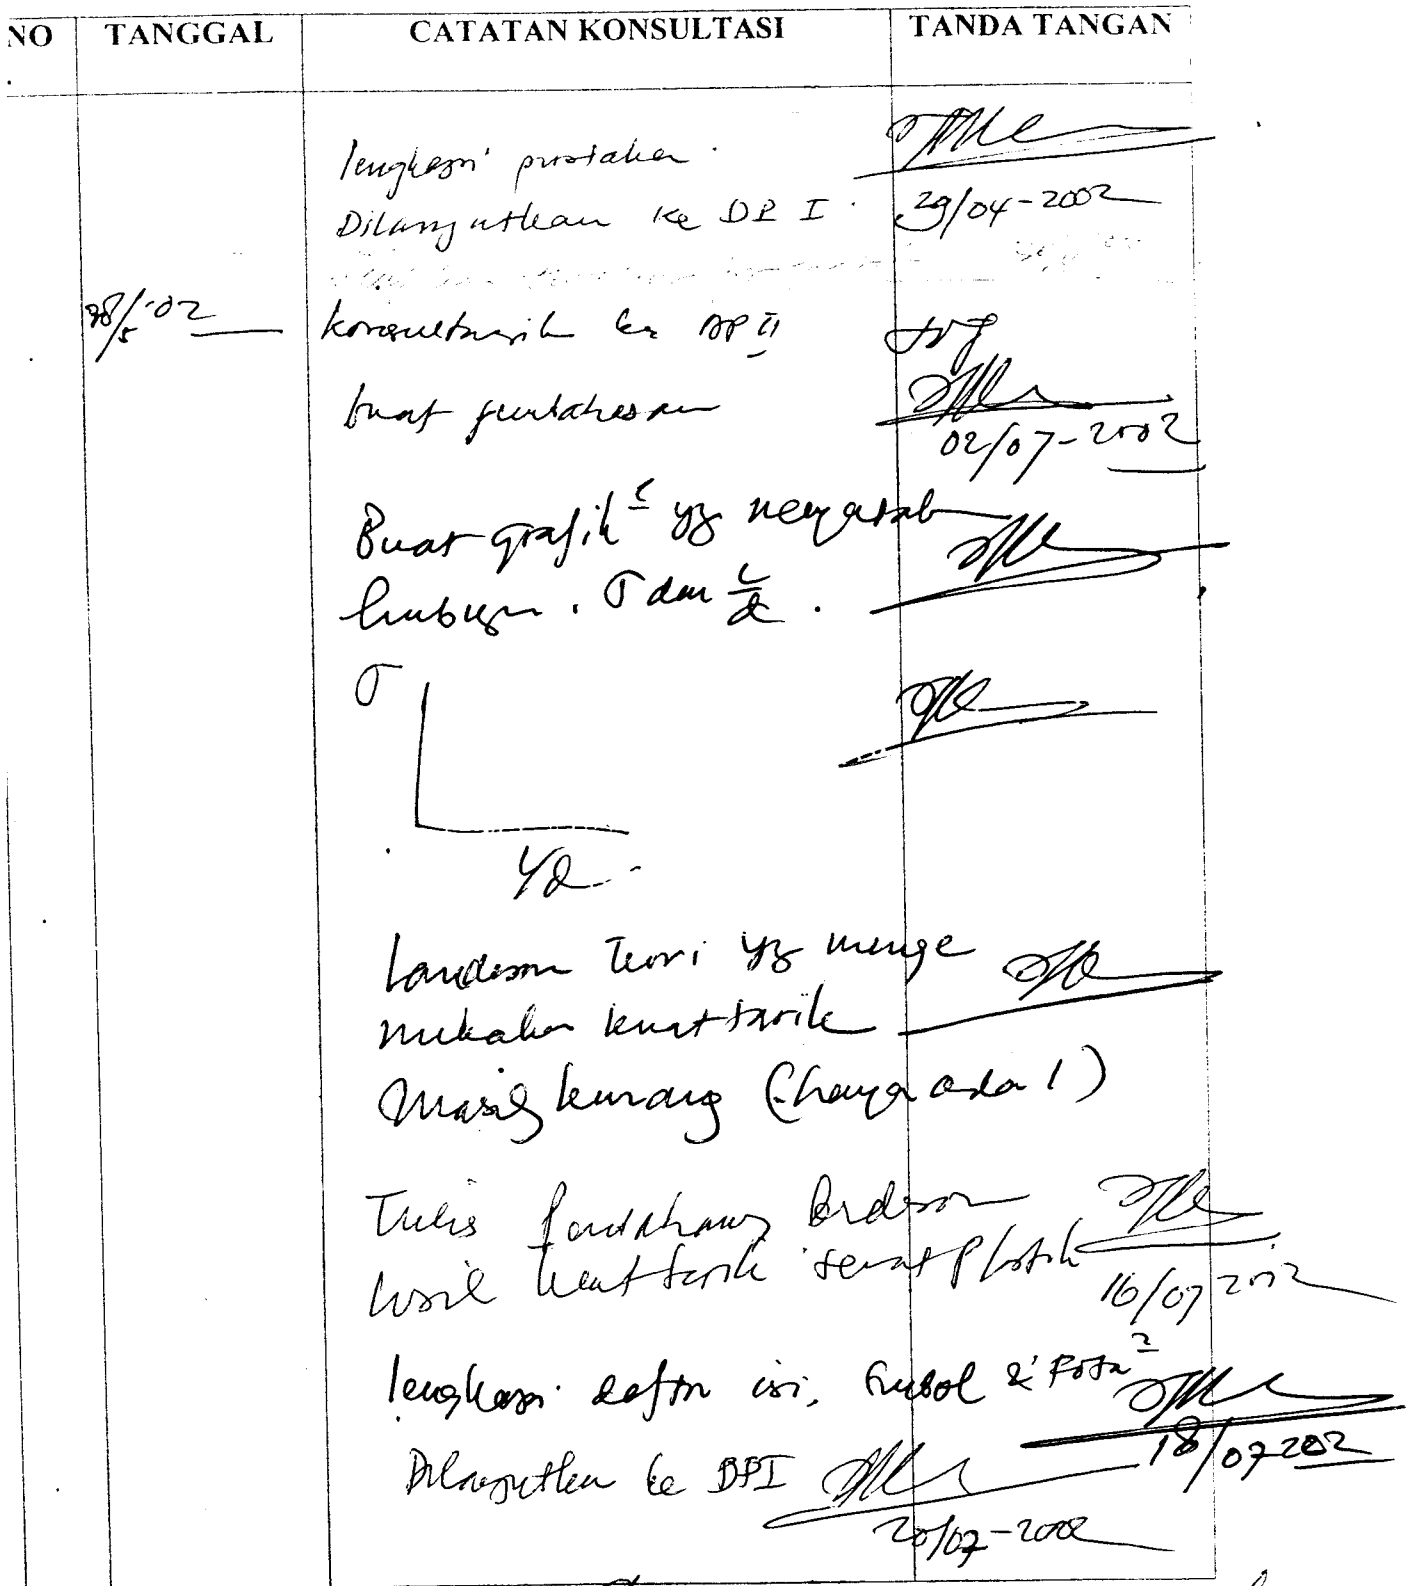 NO TANGGAL CATATAN KONSULTASI TANDA TANGAN
.
lengkapi pustaka.
Dilanjutkan ke DP I. 29/04-2002
28/5-'02 konsultasik ke DP II
buat pembahasan
02/07-2002
Buat grafik² yg menyatak
hubugn. σ dan L/d.
σ
L/d
Landasan Teori yg menge
mukakan kuat tarik
Masih kurang (hanya ada 1)
Tulis pembahasan
hasil kuat tarik serat plastik
16/07 2002
lengkapi daftar isi, simbol & Foto²
18/07 2002
Dilanjutkan ke DPI
20/07-2002